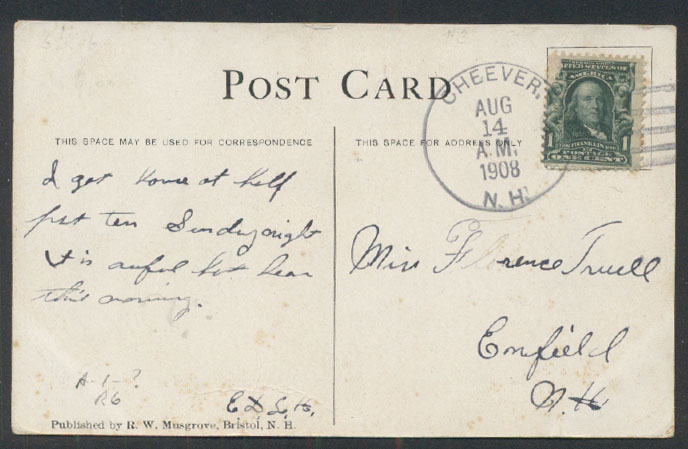 POST CARD
THIS SPACE MAY BE USED FOR CORRESPONDENCE
THIS SPACE FOR ADDRESS ONLY
CHEEVER,
AUG
14
A.M.
1908
N. H.
UNITED STATES OF
AMERICA
1 POSTAGE 1
ONE CENT
I got home at half
past ten Sunday night
it is awful hot hear
this morning.
Miss Florence Truell
Enfield
N.H.
A-1-?
R6
Published by R. W. Musgrove, Bristol, N. H.